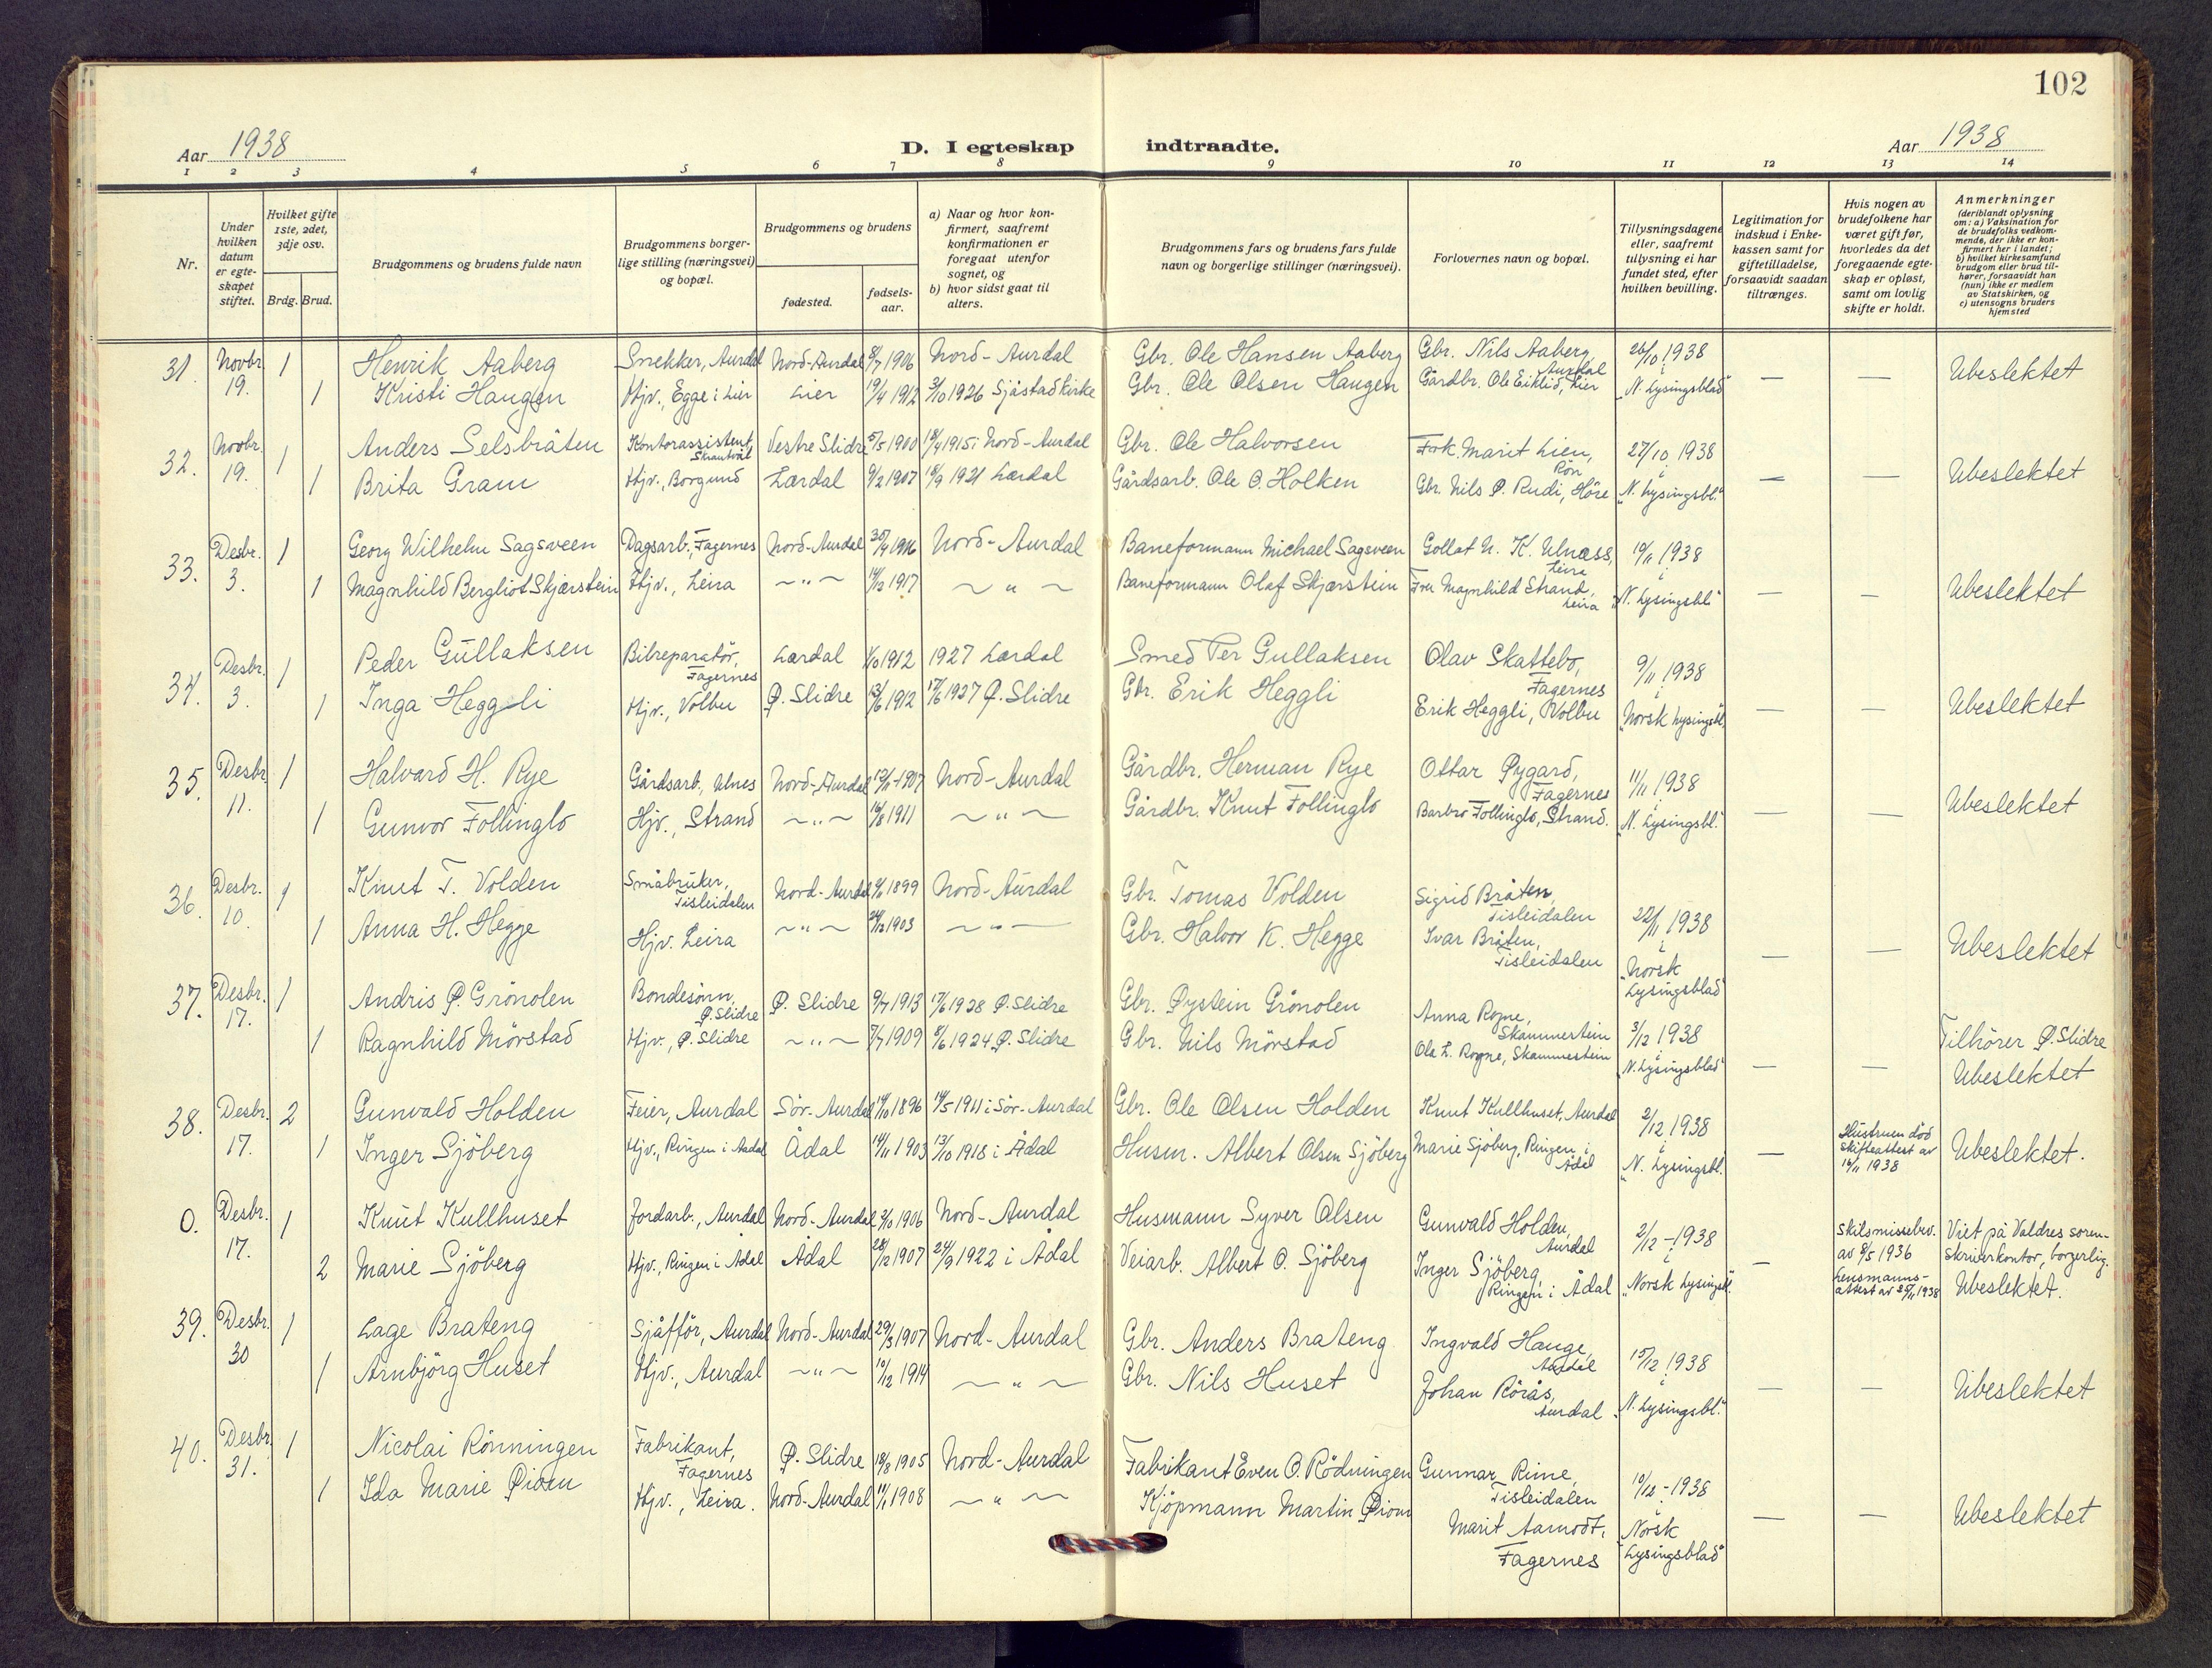 102
Aar 1938 D. I egteskap indtraadte. Aar 1938
1 2 3 4 5 6 7 8 9 10 11 12 13 14
Nr.
Under hvilken datum er egte-skapet stiftet.
Hvilket gifte 1ste, 2det, 3dje osv.
Brdg. Brud.
Brudgommens og brudens fulde navn
Brudgommens borger-lige stilling (næringsvei) og bopæl.
Brudgommens og brudens
fødested.
fødsels-aar.
a) Naar og hvor kon-firmert, saafremt konfirmationen er foregaat utenfor sognet, og
b) hvor sidst gaat til alters.
Brudgommens fars og brudens fars fulde navn og borgerlige stillinger (næringsvei).
Forlovernes navn og bopæl.
Tillysningsdagene eller, saafremt tillysning ei har fundet sted, efter hvilken bevilling.
Legitimation for indskud i Enke-kassen samt for giftetilladelse, forsaavidt saadan tiltrænges.
Hvis nogen av brudefolkene har været gift før, hvorledes da det foregaaende egte-skap er opløst, samt om lovlig skifte er holdt.
Anmerkninger
(deriblandt oplysning om: a) Vaksination for de brudefolks vedkom-mende, der ikke er kon-firmert her i landet; b) hvilket kirkesamfund brudgom eller brud til-hører, forsaavidt han (hun) ikke er medlem av Statskirken, og c) utensogns bruders hjemsted
31. Novbr. 19. 1 Henrik Aaberg Snekker, Aurdal Nord-Aurdal 8/7 1906 Nord-Aurdal Gbr. Ole Hansen Aaberg Gbr. Nils Aaberg, Aurdal 26/10 1938 — — Ubeslektet
1 Kristi Haugen Hjv., Egge i Lier Lier 19/4 1912 3/10 1926 Sjåstad kirke Gbr. Ole Olsen Haugen Gårdbr. Ole Eiklid, Lier i „N. Lysingsblad"
32. Novbr. 19. 1 Anders Selsbråten Kontorassistent, Skrautvål Vestre Slidre 5/5 1900 18/9 1915 i Nord-Aurdal Gbr. Ole Halvorsen Frk. Marit Lien, Røn 27/10 1938 — — Ubeslektet
1 Brita Gram Hjv., Borgund Lærdal 9/2 1907 18/9 1921 Lærdal Gårdsarb. Ole O. Holken Gbr. Nils P. Rudi, Höre i „N. Lysingsbl."
33. Desbr. 3. 1 Georg Wilhelm Sagsveen Dagsarb., Fagernes Nord-Aurdal 30/4 1916 Nord-Aurdal Baneformann Michael Sagsveen Gollat N. K. Ulnæss, Leira 10/11 1938 — — Ubeslektet
1 Magnhild Bergliot Skjærstein Hjv., Leira ~ " ~ 14/12 1917 ~ " ~ Baneformann Olaf Skjærstein Fru Magnhild Strand, Leira i „N. Lysingsbl."
34. Desbr. 3. 1 Peder Gullaksen Bilreparatör, Fagernes Lærdal 1/10 1912 1927 Lærdal Smed Per Gullaksen Olav Skattebo, Fagernes 9/11 1938 — — Ubeslektet
1 Inga Heggeli Hjv., Volbu Ø. Slidre 13/6 1912 17/6 1927 Ø. Slidre Gbr. Erik Heggli Erik Heggli, Volbu i „Norsk Lysingsbl."
35. Desbr. 11. 1 Halvard H. Rye Gårdsarb., Ulnes Nord-Aurdal 13/11 1907 Nord-Aurdal Gårdbr. Herman Rye Ottar Øygard, Fagernes 11/11 1938 — — Ubeslektet
1 Gunvor Follinglo Hjv., Strand ~ " ~ 16/8 1911 ~ " ~ Gårdbr. Knut Follinglo Barbro Follinglo, Strand. i „N. Lysingsbl."
36. Desbr. 10. 1 Knut T. Volden Småbruker, Tisleidalen Nord-Aurdal 1899 Nord-Aurdal Gbr. Tomas Volden Sigrid Bråten, Tisleidalen 22/11 1938 — — Ubeslektet
1 Anna H. Hegge Hjv. Leira ~ " ~ 24/12 1903 ~ " ~ Gbr. Halvor K. Hegge Ivar Bråten, Tisleidalen i „Norsk Lysingsblad"
37. Desbr. 17. 1 Andris Ø. Grönolen Bondesönn, Ø. Slidre Ø. Slidre 9/7 1913 17/6 1928 Ø. Slidre Gbr. Øystein Grönolen Anna Rogne, Skammestein 3/12 1938 — — Tilhörer Ø. Slidre
1 Ragnhild Mörstad Hjv., Ø. Slidre ~ " ~ 7/7 1909 8/6 1924 Ø. Slidre Gbr. Nils Mörstad Ola L. Rogne, Skammestein i „N. Lysingsblad" Ubeslektet
38. Desbr. 17. 2 Gunvald Holden Feier, Aurdal Sör-Aurdal 14/10 1896 14/5 1911 i Sör-Aurdal Gbr. Ole Olsen Holden Knut Kullhuset, Aurdal 2/12 1938 — Hustruen död Skifteattest av 16/11 1938 Ubeslektet.
1 Inger Sjöberg Hjv., Ringen i Aadal Ådal 14/11 1903 13/10 1918 i Ådal Husm. Albert Olsen Sjöberg Marie Sjöberg, Ringen i Ådal i „N. Lysingsbl.
0. Desbr. 17. 1 Knut Kullhuset Jordarb., Aurdal Nord-Aurdal 3/10 1906 Nord-Aurdal Husmann Syver Olsen Gunvald Holden, Aurdal 2/12 - 1938 — Skilsmissebev. av 8/5 1936 Viet på Valdres soren-skriverkontor, borgerlig.
2 Marie Sjöberg Hjv., Ringen i Ådal Ådal 28/12 1907 24/9 1922 i Ådal Veiarb. Albert O. Sjöberg Inger Sjöberg, Ringen i Ådal i „Norsk Lysingsbl." Lensmanns-attest av 25/11 1938 Ubeslektet.
39. Desbr. 30 1 Lage Brateng Sjåfför, Aurdal Nord-Aurdal 29/3 1907 Nord-Aurdal Gbr. Anders Brateng Ingvald Hauge, Aurdal 15/12 1938 — — Ubeslektet
1 Arnbjörg Huset Hjv., Aurdal ~ " ~ 10/12 1914 ~ " ~ Gbr. Nils Huset Johan Rörås, Aurdal i „N. Lysingsbl."
40. Desbr. 31. 1 Nicolai Rönningen Fabrikant, Fagernes Ø. Slidre 18/8 1905 Nord-Aurdal Fabrikant Even O. Rödningen Gunnar Rime, Tisleidalen 10/12 - 1938 — — Ubeslektet
1 Ida Marie Øiom Hjv., Leira. Nord-Aurdal 11/1 1908 ~ " ~ Kjöpmann Martin Øiom Marit Aamodt, Fagernes i „Norsk Lysingsblad"